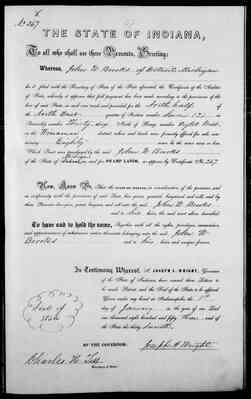 No 267
THE STATE OF INDIANA,
To all who shall see these Presents, Greeting:
Whereas, John W Brooks of Detroit Michigan
ha filed with the Secretary of State of the State aforesaid, the Certificate of the Auditor
of State, whereby it appears that full payment has been made according to the provisions of the
law of said State, in such case made and provided for the North half of
the North East quarter of Section number
Township number Thirty of Range number Eight West
in the Winamac district where said lands were formerly offered for sale, containing
Eighty acres be the same more or less,
Which Tract was purchased by the said John W Brooks
of the State of Michigan as SWAMP LANDS, as appears by Certificate No 267
Now, Know Ye, That the STATE OF INDIANA, in consideration of the premises, and
in conformity with the provisions of said Law, has given, granted, bargained and sold, and by
these Presents does give, grant, bargain, and sell unto the said John W Brooks
and to his heirs, the said tract above described.
To have and to hold the same, Together with all the rights, privileges, immunities
and appurtenances of whatsoever nature thereunto belonging, unto the said John W
Brooks and to his heirs and assigns forever.
In Testimony Whereof, I, JOSEPH A. WRIGHT, Governor
of the State of Indiana, have caused these Letters to
be made Patent, and the Seal of the State to be affixed.
Given under my hand at Indianapolis, the 1st
day of January in the year of our Lord
one thousand eight hundred and fifty three and of
the State the thirty seventh
Seal of
State
BY THE GOVERNOR.
Joseph A Wright
Charles H. Test
Secretary of State.